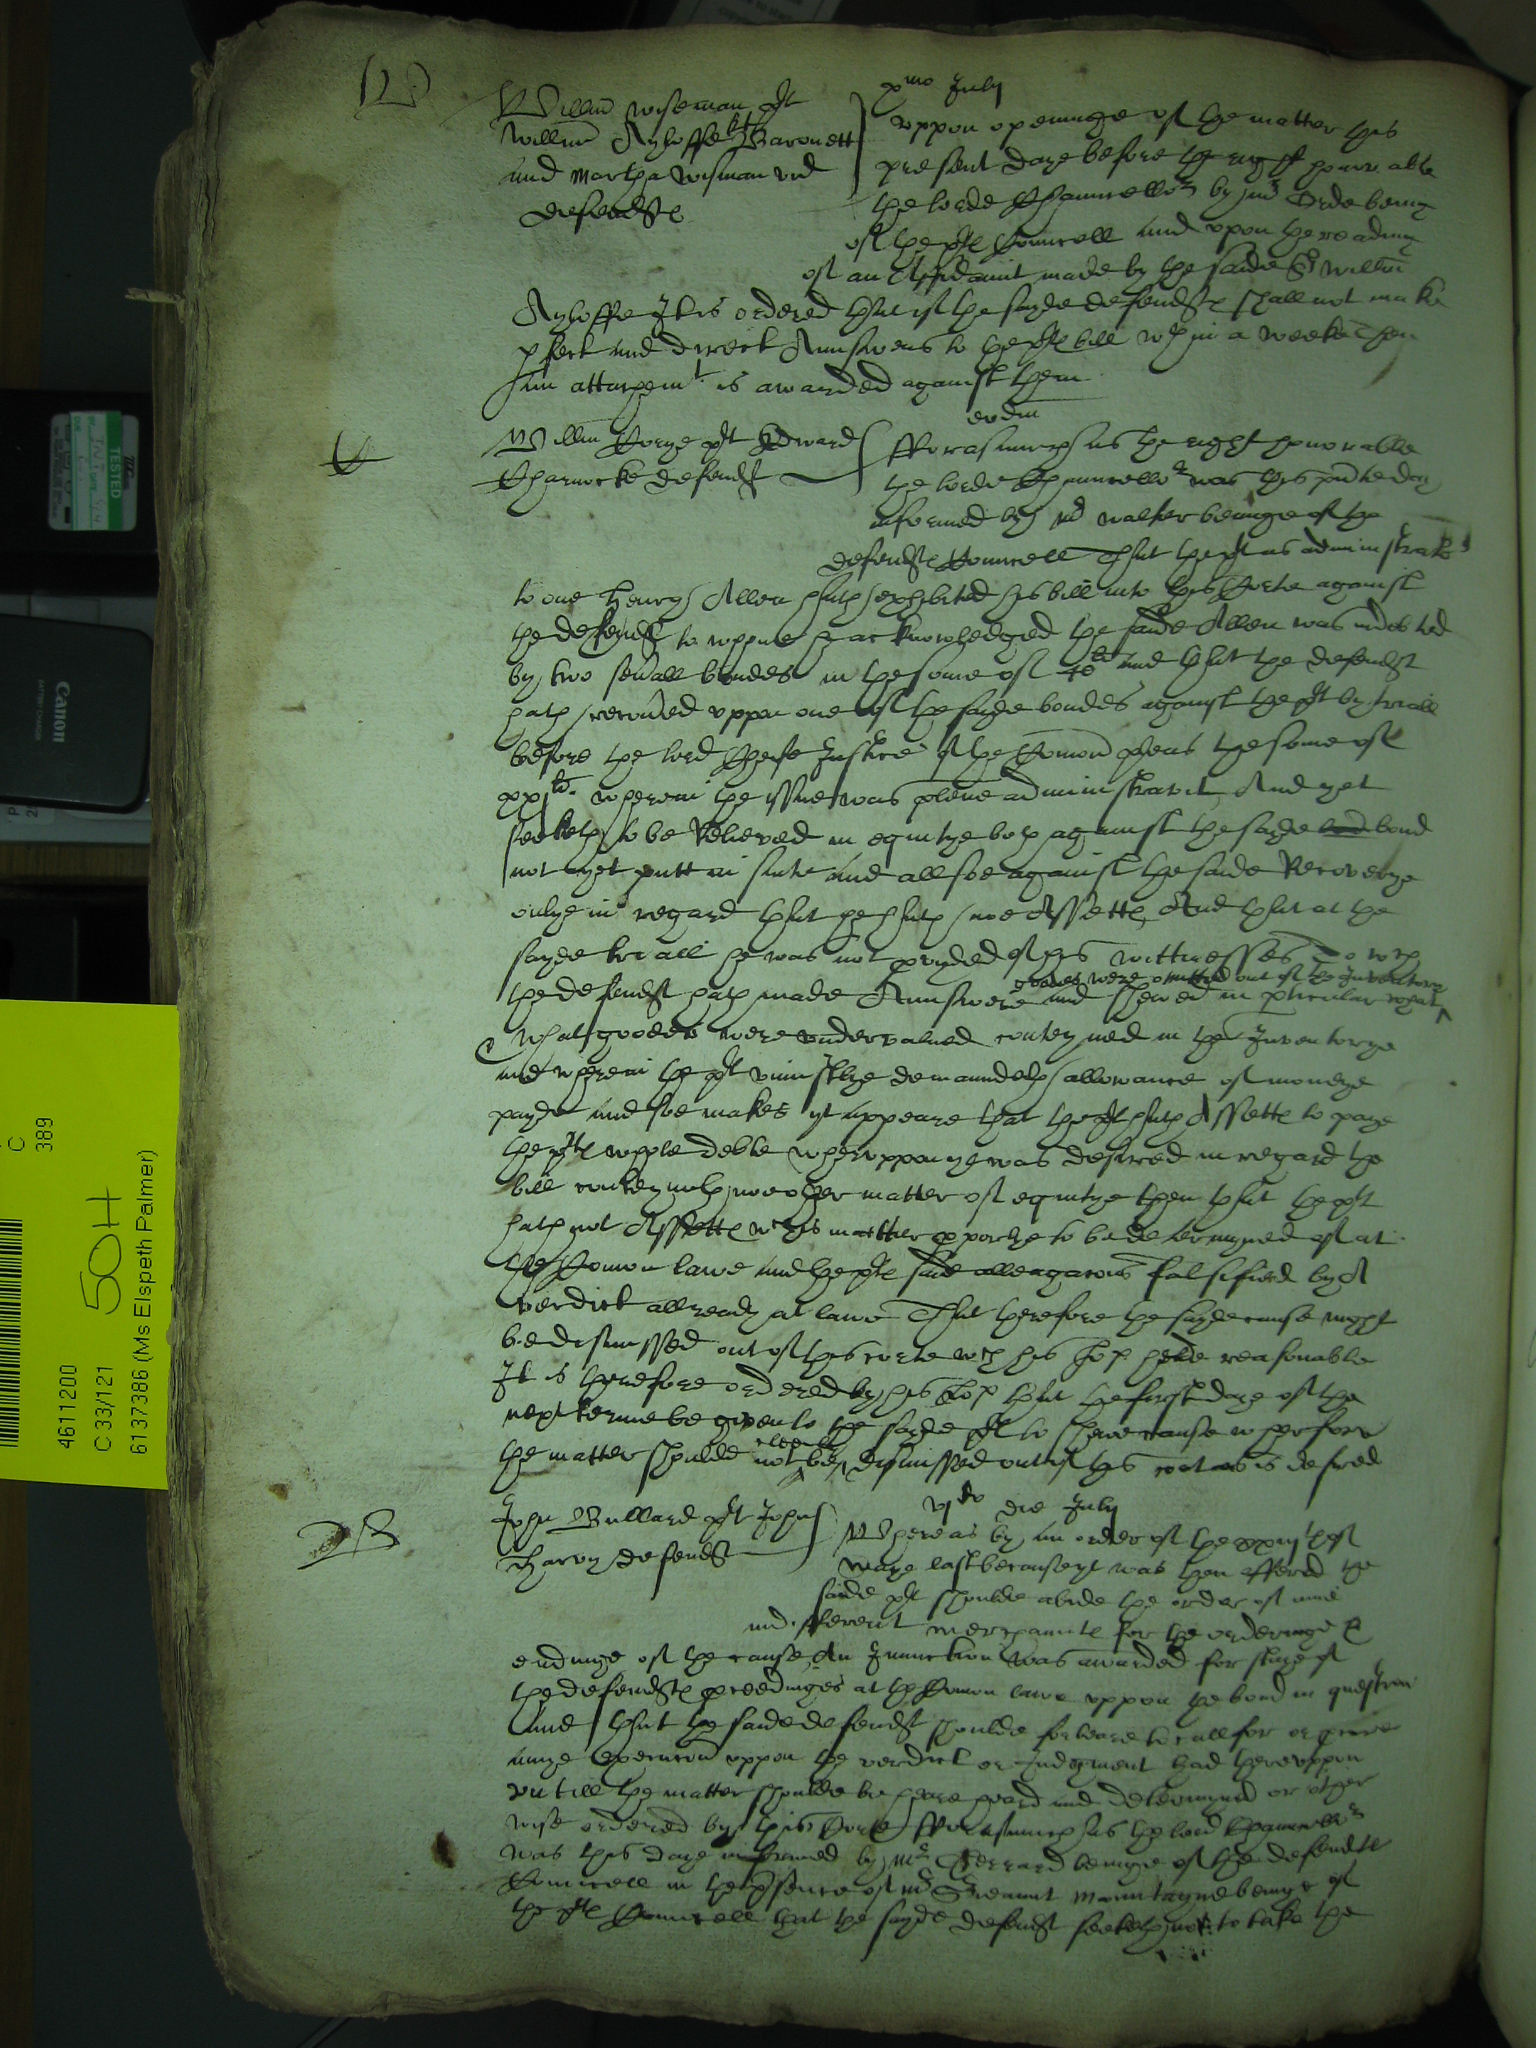 pmo July
Willm Wiseman plt
Willm Ayloffe kt Baronett
and Martha Wisman vid
defendtes
Uppon openinge of the matter this
present daye before the right honorable
the lorde Chauncellor by mr Orde being
of the ptes Councell and upon the readinge
of an Affidavit made by the saide Sr Willm
Ayloffe It is ordered that if the sayde defendtes shall not make
pfect and direct Aunswers to the ptes bill wthin a weeke Then
an attachemt is awarded against them
eodm
Willm plt Edward
Charnocke defendt
Fforasmuch as the right honorable
the lorde Chauncellor was this pnte day
informed by mr Walter beinge of the
defendtes Councell That the plt as administrator
to one Henry Allen hath exhibited his bill into this Corte against
the defendt to whome he acknowledged the saide Allen was indebted
by two sevall bondes in the some of 40li and that the defendt
hath recoued uppon one of the sayde bondes against the plt by triall
before the lord Cheife Justice of the Comon pleas the some of
xxli. wherein the issue was plene administravit And yet
seeketh to be Releved in equitye both against the sayde bond
not yet putt in suite and allsoe against the saide Recoverye
onlye in regard that he hath noe Assettes And that at the
sayde triall he was not pvyded of his wittnesses To wch
goodes were omitted out of the Inventory
the defendt hath made Aunswere and shewed in pticular what
& what goodes were undervalued conteyned in the Inventorye
and wherein the plt uniustlye demaundeth allowance of moneye
payde and soe makes yt appeare that the plt hath Assettes to paye
the whole debte wheruppon yt was desired in regard the
bill conteyneth noe other matter of equitye then that the plt
hath not Assettes wch is matter pporlye to be determyned of at
the Comon lawe and the ptes said alleagacons falsified by A
verdict allready at lawe That therefore the sayde cause might
be dismissed out of this corte wch his Lop: helde reasonable
It is therefore ordered by his Lop: that the first daye of the
next terme be given to the sayde plt to shewe cause wherfore
the matter shoulde not be cleerely dismissed out of this cort as is desired
vjto die July
John Bullard plt John
Harvy defendt
Whereas by an order of the xxvjth of
Maye last because yt was then offered the
saide plt shoulde abide the order of
indifferent merchauntes for the orderinge &
endinge of the cause An Iniunction was awarded for staye of
the defendtes pceedinges at the Comon lawe uppon the bond in question
And that the saide defendt shoulde forbeare to call for or
anye execucon uppon the verdict or Judgment had thereuppon
untill the matter shoulde be heard and determyned or other
wise ordered by this Corte Fforasmuch as the lord Chauncellor
was this daye informed by Mr Gerrard beinge of the defendtes
Councell in the psence of mr Sreaunt Mountayne beinge of
the ptes Councell that the sayde defendt seeketh not to take the
TESTED
Canon
BATTERY CHARGER
C
389
50H
4611200
C 33/121
6137386 (Ms Elspeth Palmer)